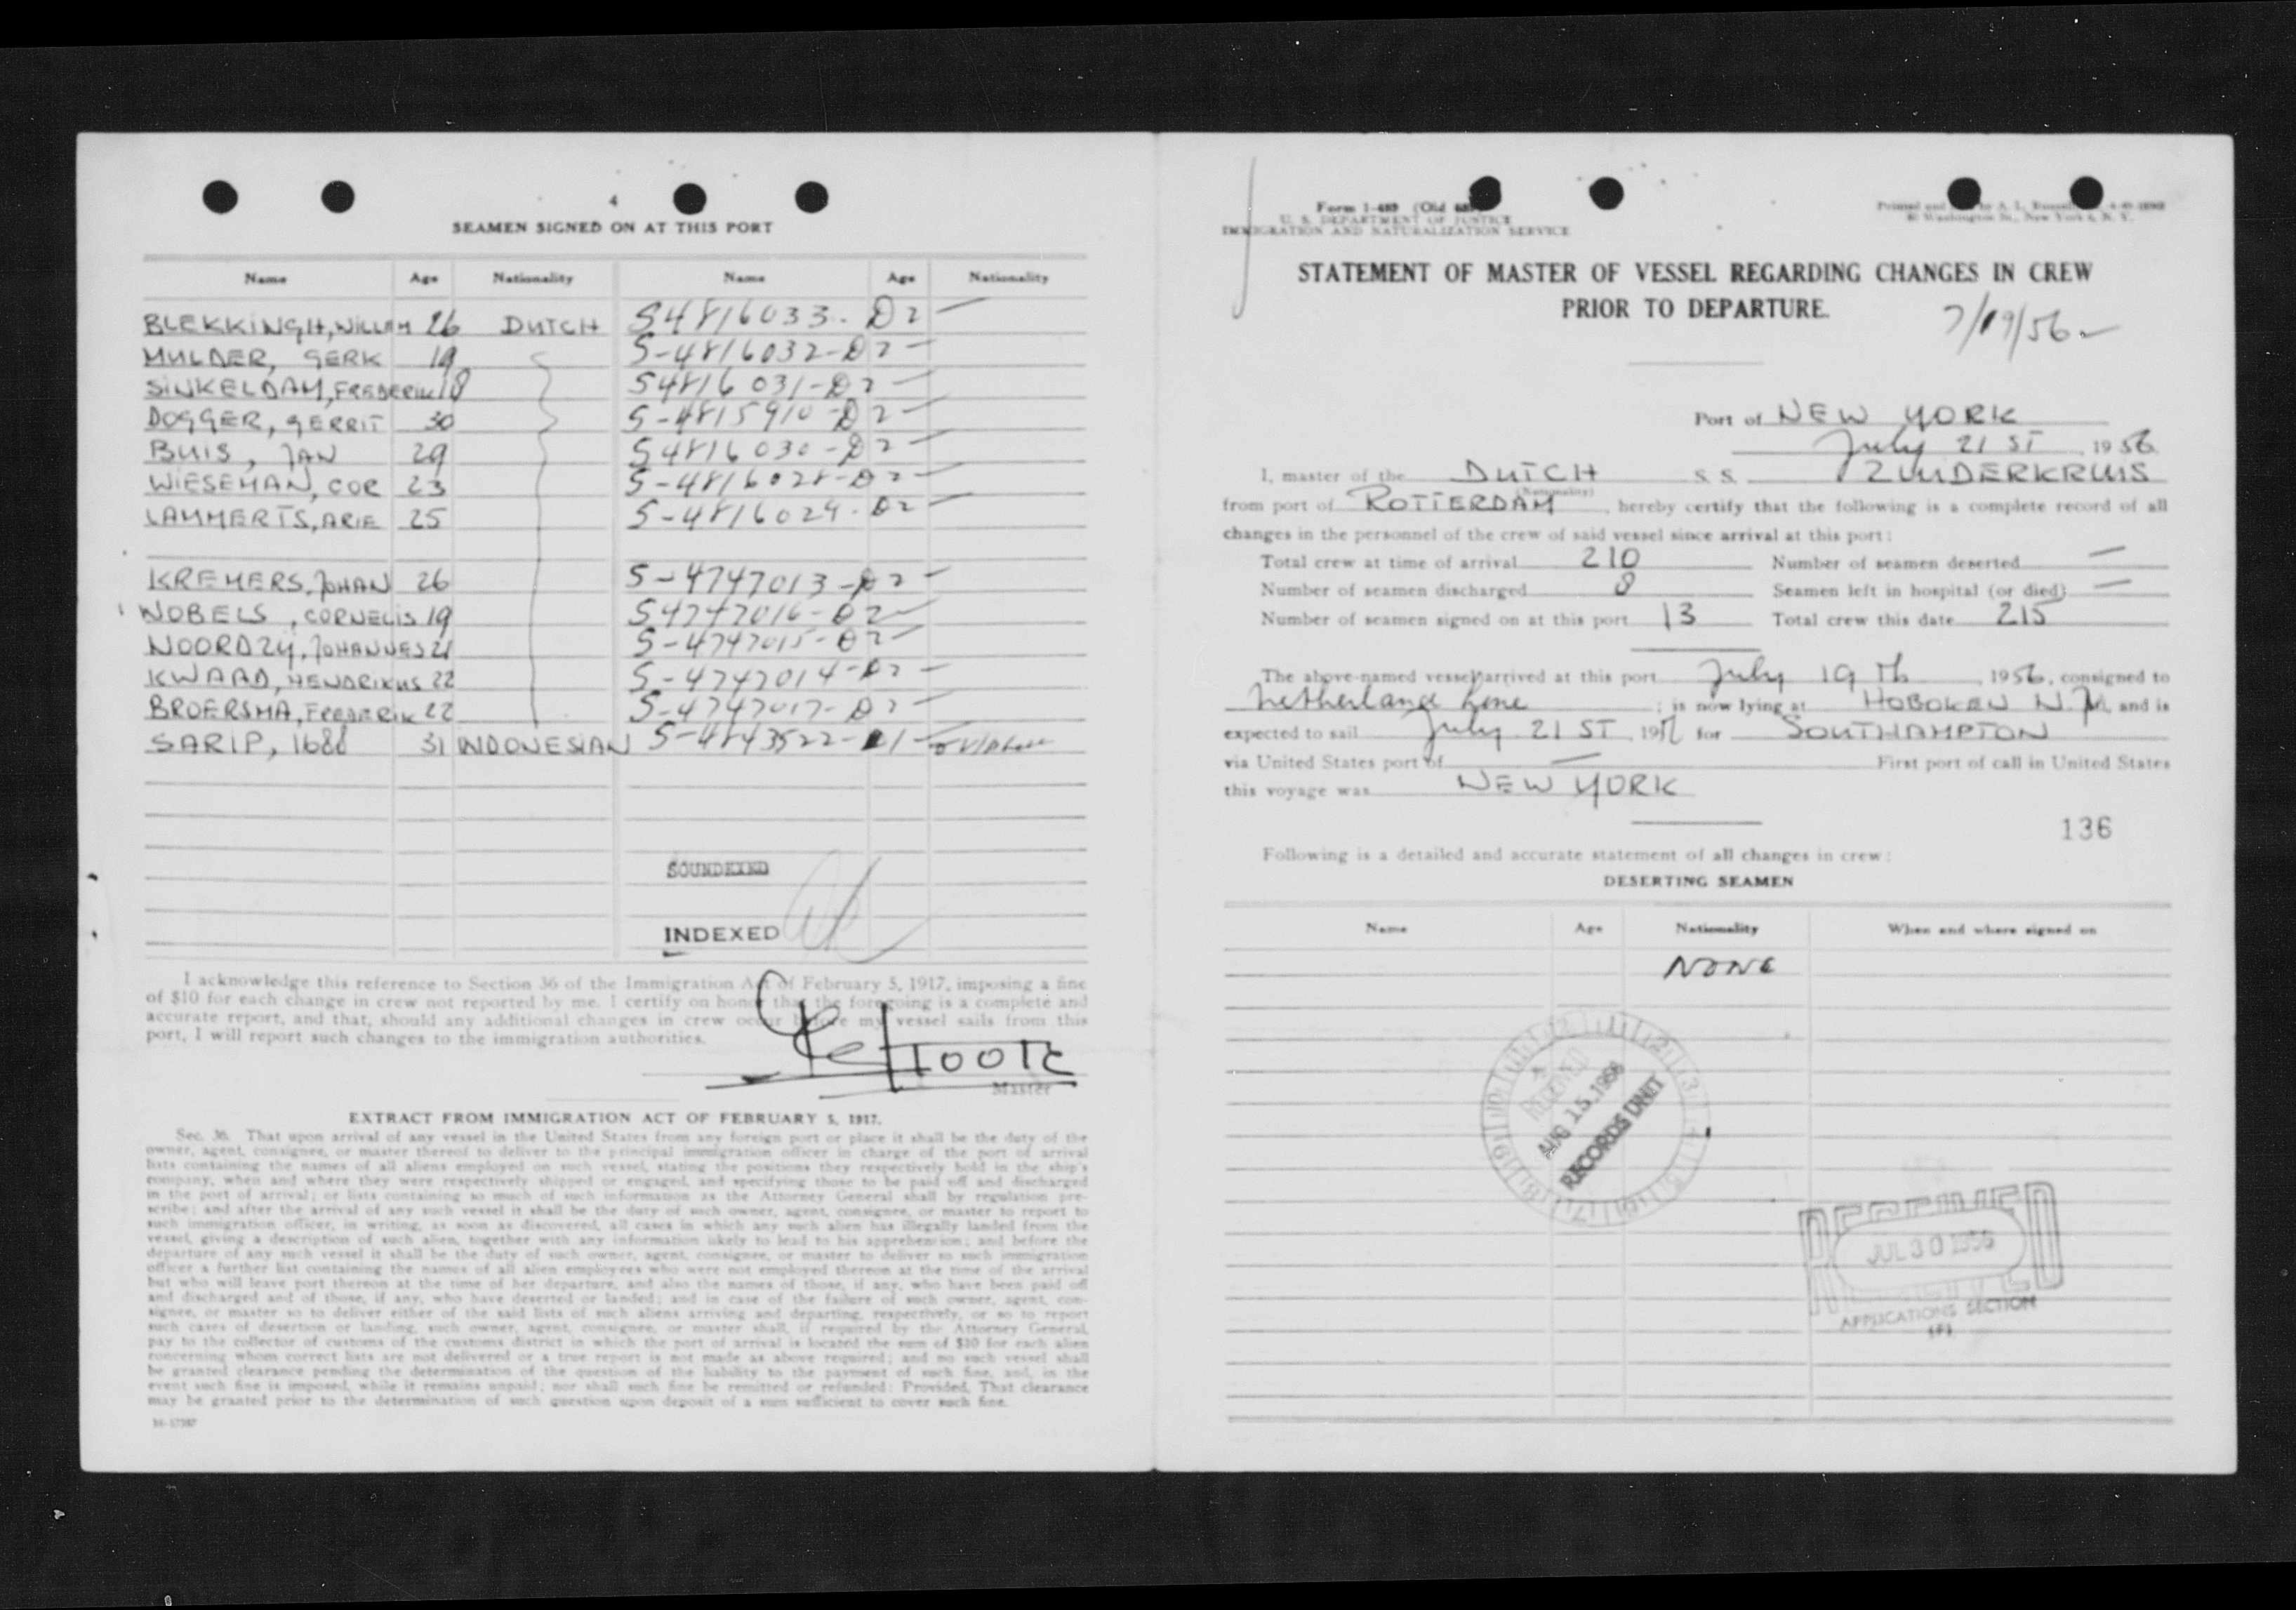 4
SEAMEN SIGNED ON AT THIS PORT
Name Age Nationality Name Age Nationality
BLEKKINGH, WILLEM 26 DUTCH S4816033-D2 —
MULDER, GERK 19 S-4816032-D2 —
SINKELDAM, FREDERIK 18 S4816031-D2 —
DOGGER, GERRIT 30 S-4815910-D2 —
BUIS, JAN 29 S4816030-D2 —
WIESEMAN, COR 23 S-4816028-D2 —
LAMMERTS, ARIE 25 S-4816029-D2 —
KREMERS, JOHAN 26 S-4747013-D2 —
NOBELS, CORNELIS 19 S4747016-D2 —
NOORDZY, JOHANNES 21 S-4747015-D2 —
KWAAD, HENDRIKUS 22 S-4747014-D2 —
BROERSMA, FREDERIK 22 S-4747017-D2 —
SARIP, 1688 31 INDONESIAN S-4843522-D1 —
SOUNDEXED
INDEXED
I acknowledge this reference to Section 36 of the Immigration Act of February 5, 1917, imposing a fine
of $10 for each change in crew not reported by me. I certify on honor that the foregoing is a complete and
accurate report, and that, should any additional changes in crew occur before my vessel sails from this
port, I will report such changes to the immigration authorities.
Master
EXTRACT FROM IMMIGRATION ACT OF FEBRUARY 5, 1917.
Sec. 36. That upon arrival of any vessel in the United States from any foreign port or place it shall be the duty of the
owner, agent, consignee, or master thereof to deliver to the principal immigration officer in charge of the port of arrival
lists containing the names of all aliens employed on such vessel, stating the positions they respectively hold in the ship's
company, when and where they were respectively shipped or engaged, and specifying those to be paid off and discharged
in the port of arrival; or lists containing so much of such information as the Attorney General shall by regulation pre-
scribe; and after the arrival of any such vessel it shall be the duty of such owner, agent, consignee, or master to report to
such immigration officer, in writing, as soon as discovered, all cases in which any such alien has illegally landed from the
vessel, giving a description of such alien, together with any information likely to lead to his apprehension; and before the
departure of any such vessel it shall be the duty of such owner, agent, consignee, or master to deliver to such immigration
officer a further list containing the names of all alien employees who were not employed thereon at the time of the arrival
but who will leave port thereon at the time of her departure, and also the names of those, if any, who have been paid off
and discharged and of those, if any, who have deserted or landed; and in case of the failure of such owner, agent, con-
signee, or master so to deliver either of the said lists of such aliens arriving and departing, respectively, or so to report
such cases of desertion or landing, such owner, agent, consignee, or master shall, if required by the Attorney General,
pay to the collector of customs of the customs district in which the port of arrival is located the sum of $10 for each alien
concerning whom correct lists are not delivered or a true report is not made as above required; and no such vessel shall
be granted clearance pending the determination of the question of the liability to the payment of such fine, and, in the
event such fine is imposed, while it remains unpaid; nor shall such fine be remitted or refunded: Provided, That clearance
may be granted prior to the determination of such question upon deposit of a sum sufficient to cover such fine.
Form I-489 (Old
U. S. DEPARTMENT OF JUSTICE
IMMIGRATION AND NATURALIZATION SERVICE
STATEMENT OF MASTER OF VESSEL REGARDING CHANGES IN CREW
PRIOR TO DEPARTURE.
7/19/56
Port of NEW YORK
July 21 ST, 1956
I, master of the DUTCH S. S. ZUIDERKRUIS
(Nationality)
from port of ROTTERDAM, hereby certify that the following is a complete record of all
changes in the personnel of the crew of said vessel since arrival at this port:
Total crew at time of arrival 210 Number of seamen deserted —
Number of seamen discharged 8 Seamen left in hospital (or died) —
Number of seamen signed on at this port 13 Total crew this date 215
The above-named vessel arrived at this port July 19 th, 1956, consigned to
Netherland Line; is now lying at HOBOKEN N.J., and is
expected to sail July 21 ST, 1956 for SOUTHAMPTON
via United States port of — First port of call in United States
this voyage was NEW YORK
136
Following is a detailed and accurate statement of all changes in crew:
DESERTING SEAMEN
Name Age Nationality When and where signed on
NONE
RECEIVED
AUG 15 1956
RECORDS UNIT
RECEIVED
JUL 30 1956
APPLICATIONS SECTION